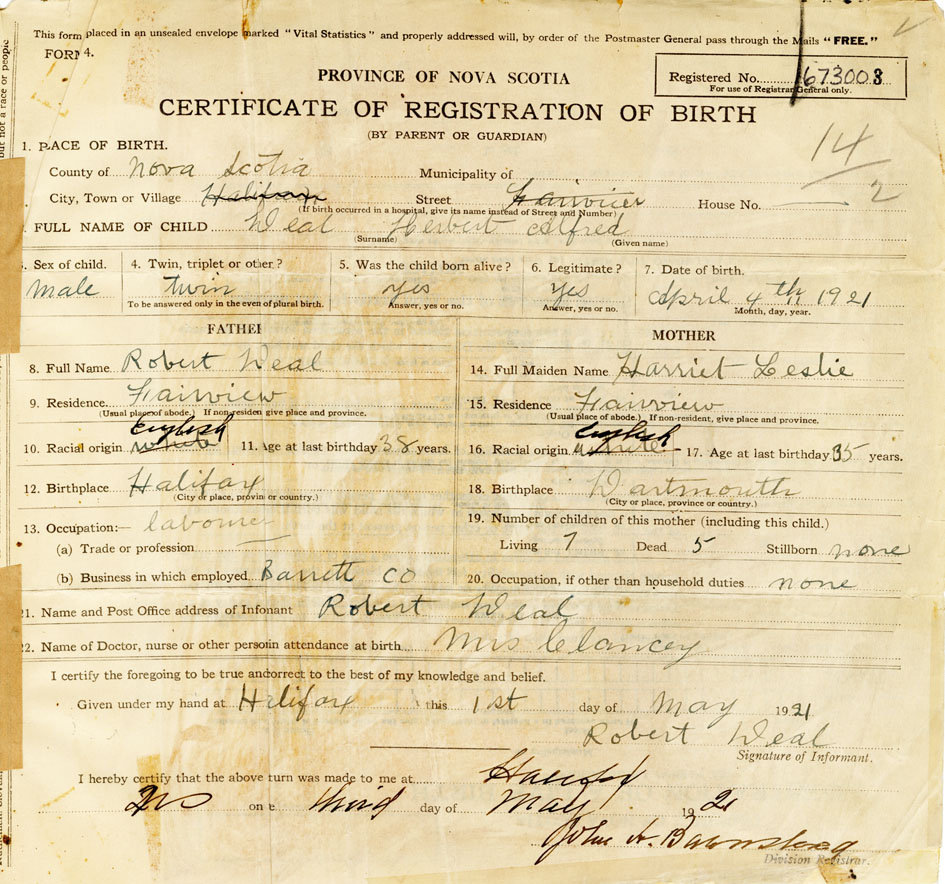 This form placed in an unsealed envelope marked "Vital Statistics" and properly addressed will, by order of the Postmaster General pass through the Mails "FREE."
FORM 4.
PROVINCE OF NOVA SCOTIA
Registered No. 673003
For use of Registrar General only.
CERTIFICATE OF REGISTRATION OF BIRTH
(BY PARENT OR GUARDIAN)
14
2
1. PLACE OF BIRTH.
County of Nova Scotia Municipality of
City, Town or Village Halifax Street Fairview House No.
(If birth occurred in a hospital, give its name instead of Street and Number)
FULL NAME OF CHILD Weal Herbert Alfred
(Surname) (Given name)
Sex of child. 4. Twin, triplet or other? 5. Was the child born alive? 6. Legitimate? 7. Date of birth.
Male twin yes yes April 4th 1921
To be answered only in the even of plural birth. Answer, yes or no. Answer, yes or no. Month, day, year.
FATHER MOTHER
8. Full Name Robert Weal 14. Full Maiden Name Harriet Leslie
9. Residence Fairview 15. Residence Fairview
(Usual place of abode.) If non-residen give place and province. (Usual place of abode.) If non-resident, give place and province.
English English
10. Racial origin white 11. Age at last birthday 38 years. 16. Racial origin white 17. Age at last birthday 35 years.
12. Birthplace Halifax 18. Birthplace Dartmouth
(City or place, provin or country.) (City or place, province or country.)
13. Occupation:— labourer 19. Number of children of this mother (including this child.)
(a) Trade or profession Living 7 Dead 5 Stillborn none
(b) Business in which employed Barrett Co 20. Occupation, if other than household duties none
21. Name and Post Office address of Infonant Robert Weal
22. Name of Doctor, nurse or other person in attendance at birth Mrs Clancey
I certify the foregoing to be true and correct to the best of my knowledge and belief.
Given under my hand at Halifax this 1st day of May 1921
Robert Weal
Signature of Informant.
I hereby certify that the above turn was made to me at Halifax
on e third day of May 192
John A.
Division Registrar.
but not a race or people